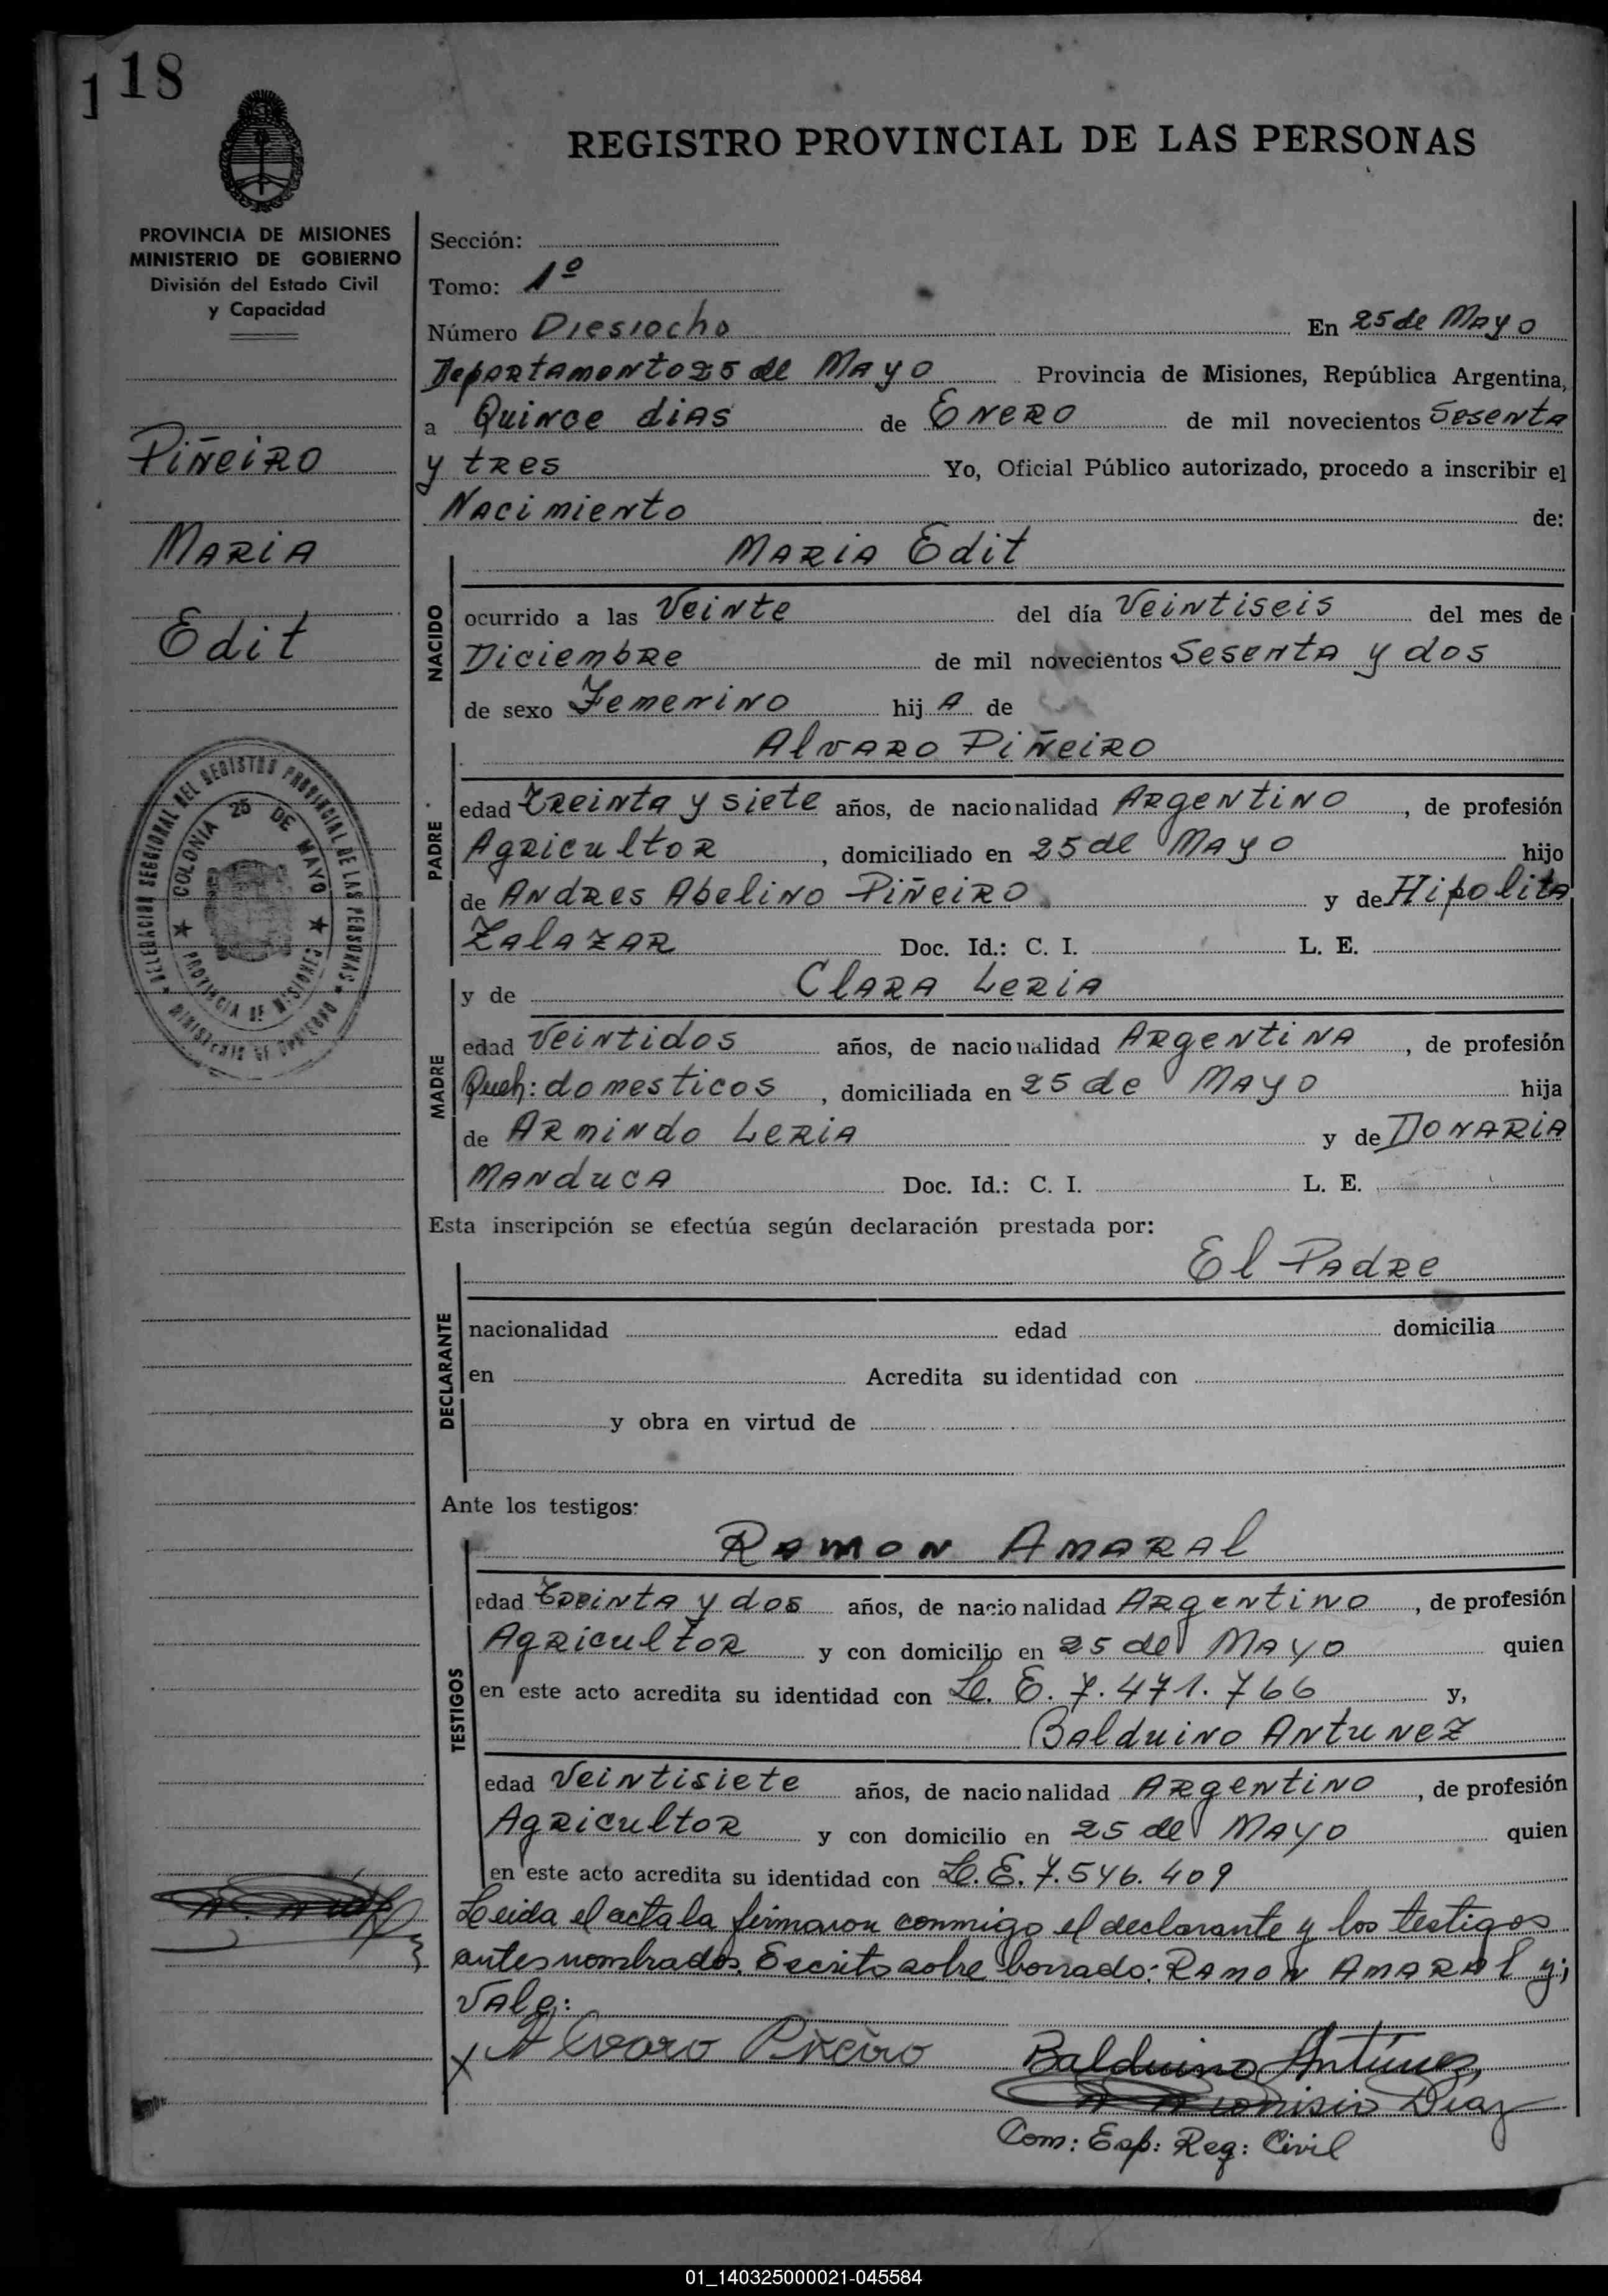 1 18
REGISTRO PROVINCIAL DE LAS PERSONAS
PROVINCIA DE MISIONES
MINISTERIO DE GOBIERNO
División del Estado Civil
y Capacidad
Piñeiro
Maria
Edit
DELEGACION SECCIONAL DEL REGISTRO PROVINCIAL DE LAS PERSONAS
COLONIA 25 DE MAYO
PROVINCIA DE MISIONES
MINISTERIO DE GOBIERNO
Sección:
Tomo: 1º
Número Diesiocho En 25 de Mayo
Departamento 25 de Mayo Provincia de Misiones, República Argentina,
a Quince dias de Enero de mil novecientos Sesenta
y tres Yo, Oficial Público autorizado, procedo a inscribir el
Nacimiento de:
Maria Edit
NACIDO
ocurrido a las Veinte del día Veintiseis del mes de
Diciembre de mil novecientos Sesenta y dos
de sexo Femenino hij a de
Alvaro Piñeiro
PADRE
edad treinta y siete años, de nacionalidad Argentino, de profesión
Agricultor, domiciliado en 25 de Mayo hijo
de Andres Abelino Piñeiro y de Hipolita
Zalazar Doc. Id.: C. I. L. E.
y de Clara Leria
MADRE
edad Veintidos años, de nacionalidad Argentina, de profesión
Queh: domesticos, domiciliada en 25 de Mayo hija
de Armindo Leria y de Donaria
Manduca Doc. Id.: C. I. L. E.
Esta inscripción se efectúa según declaración prestada por:
El Padre
DECLARANTE
nacionalidad edad domicilia
en Acredita su identidad con
y obra en virtud de
Ante los testigos:
Ramon Amaral
TESTIGOS
edad treinta y dos años, de nacionalidad Argentino, de profesión
Agricultor y con domicilio en 25 de Mayo quien
en este acto acredita su identidad con L. E. 7.471.766 y,
Balduino Antunez
edad Veintisiete años, de nacionalidad Argentino, de profesión
Agricultor y con domicilio en 25 de Mayo quien
en este acto acredita su identidad con L.E. 7.546.409
Leida el acta la firmaron conmigo el declarante y los testigos
antes nombrados. Escrito sobre borrado: Ramon Amaral y;
Vale:
x Alvaro Piñeiro Balduino Antunez
Dionisio Diaz
Com: Esp: Reg: Civil
01_140325000021-045584